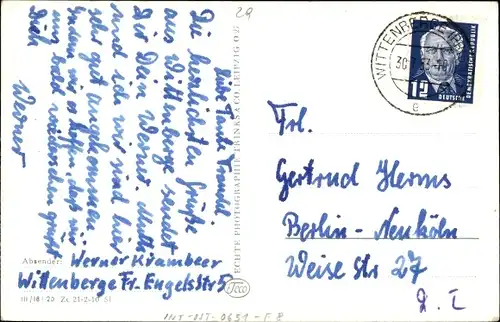 29
Liebe Tante Trudel
Die herzlichsten Grüße
aus Wittenberge sendet
Dir Dein Werner. Mutti
und ich wir sind hier
sehr gut angekommen
wir hoffen, daß wir
uns bald
Dich
Werner
Absender: Werner Krambeer
Wittenberge Fr. Engelsstr 5
III/18/20 Zc 21-2-10 51
ECHTE PHOTOGRAPHIE TRINKS & CO LEIPZIG
Trico
WITTENBERGE
30
e
12
DEUTSCHE
DEMOKRATISCHE REPUBLIK
Frl.
Gertrud Herms
Berlin-Neuköln
Weise Str 27
INT-OST-0651-F8